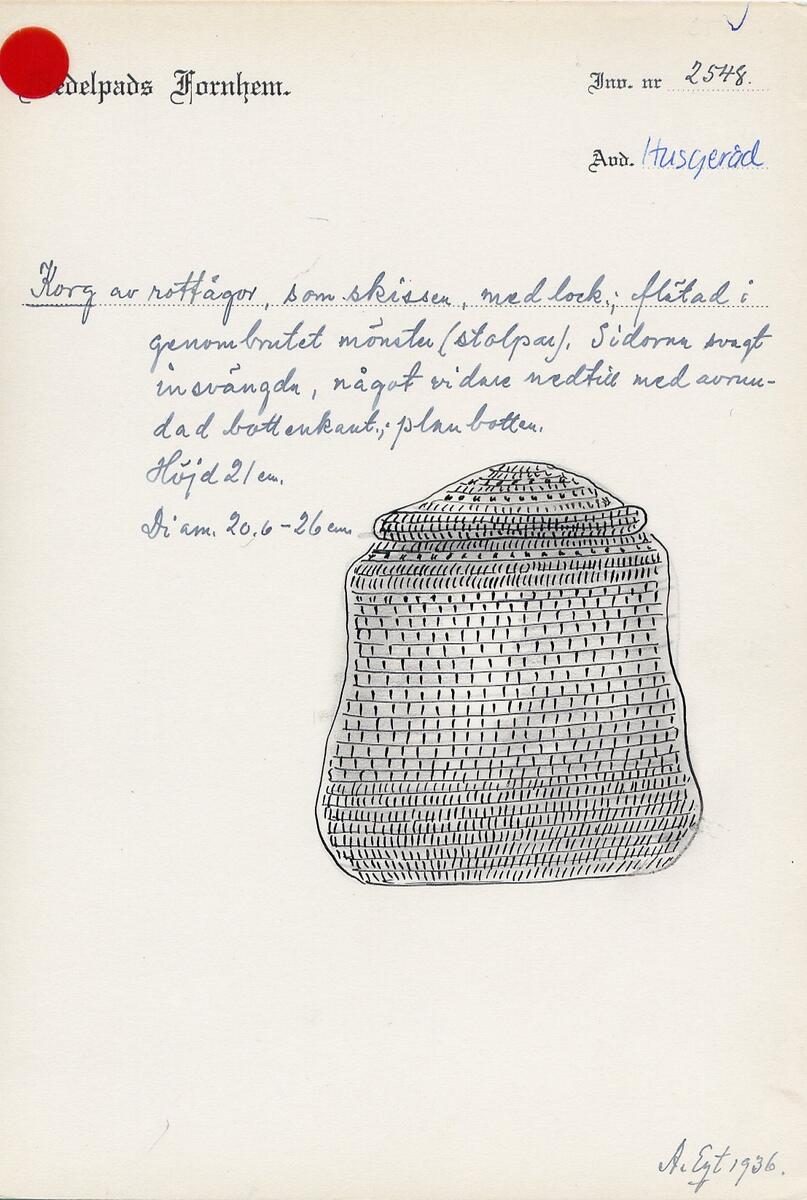 edelpads Fornhem.
Inv. nr 2548.
Avd. Husgeråd
Korg av rottågor, som skissen, med lock; flätad i
genombrutet mönster (stolpar). Sidorna svagt
insvängda, något vidare nedtill med avrun-
dad bottenkant; plan botten.
Höjd 21 cm.
Diam. 20,6-26 cm.
A. Egt 1936.